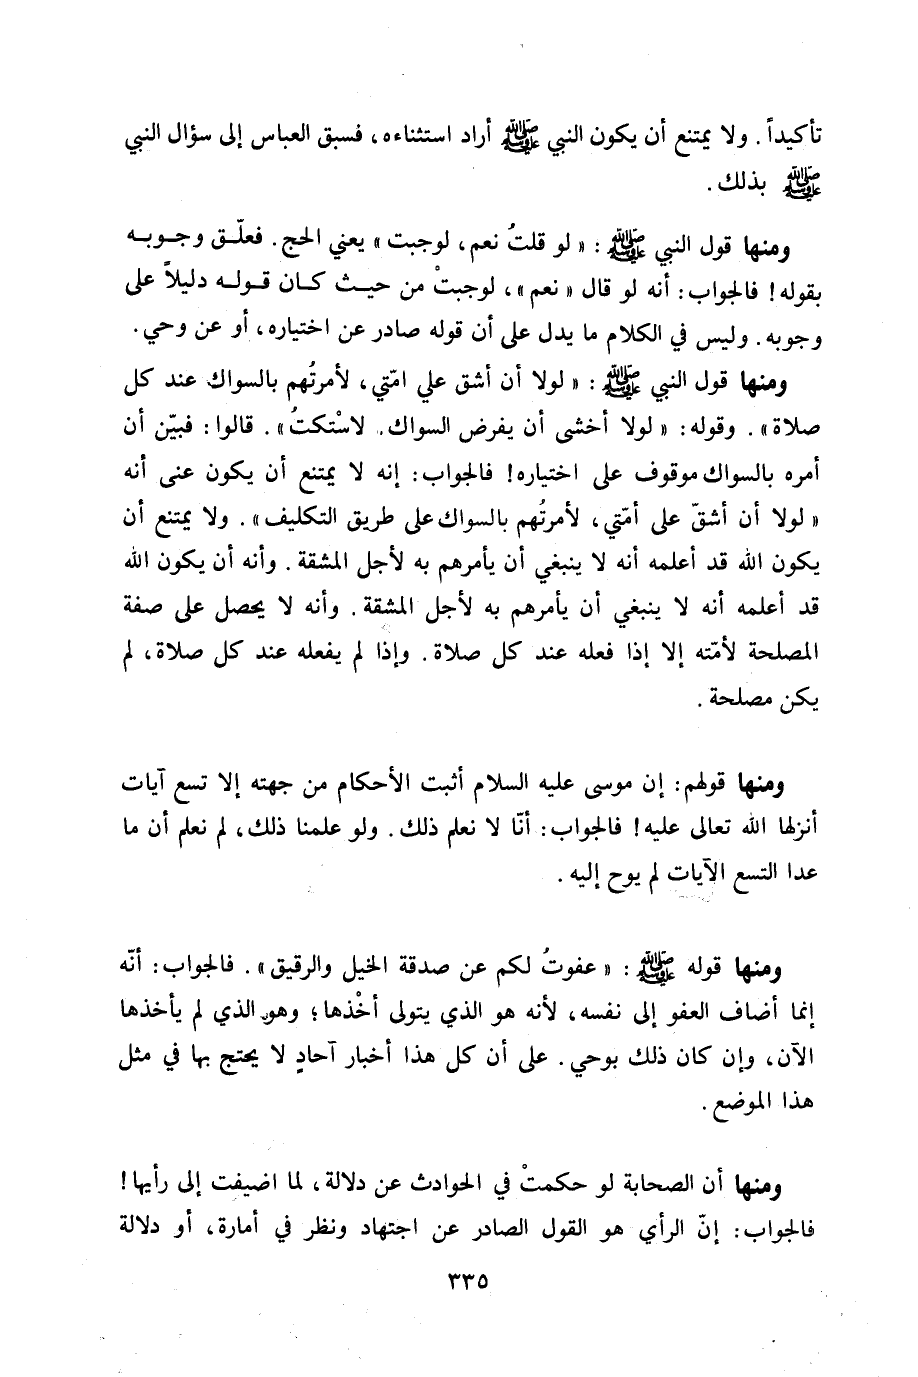 تأكيداً. ولا يمتنع أن يكون النبي ﷺ أراد استثناءه، فسبق العباس إلى سؤال النبي
ﷺ بذلك.
ومنها قول النبي ﷺ: « لو قلتُ نعم، لوجبت » يعني الحج. فعلّق وجوبه
بقوله! فالجواب: أنه لو قال « نعم »، لوجبتْ من حيث كان قوله دليلاً على
وجوبه. وليس في الكلام ما يدل على أن قوله صادر عن اختياره، أو عن وحي.
ومنها قول النبي ﷺ: « لولا أن أشق علي امّتي، لأمرتُهم بالسواك عند كل
صلاة ». وقوله: « لولا أخشى أن يفرض السواك. لاسْتكتُ ». قالوا: فبيّن أن
أمره بالسواك موقوف على اختياره! فالجواب: إنه لا يمتنع أن يكون عنى أنه
« لولا أن أشقّ على أمّتي، لأمرتُهم بالسواك على طريق التكليف ». ولا يمتنع أن
يكون الله قد أعلمه أنه لا ينبغي أن يأمرهم به لأجل المشقة. وأنه أن يكون الله
قد أعلمه أنه لا ينبغي أن يأمرهم به لأجل المشقة. وأنه لا يحصل على صفة
المصلحة لأمّته إلا إذا فعله عند كل صلاة. وإذا لم يفعله عند كل صلاة، لم
يكن مصلحة.
ومنها قولهم: إن موسى عليه السلام أثبت الأحكام من جهته إلا تسع آيات
أنزلها الله تعالى عليه! فالجواب: أنّا لا نعلم ذلك. ولو علمنا ذلك، لم نعلم أن ما
عدا التسع الآيات لم يوح إليه.
ومنها قوله ﷺ: « عفوتُ لكم عن صدقة الخيل والرقيق ». فالجواب: أنّه
إنما أضاف العفو إلى نفسه، لأنه هو الذي يتولى أخْذها؛ وهو الذي لم يأخذها
الآن، وإن كان ذلك بوحي. على أن كل هذا أخبار آحادٍ لا يحتج بها في مثل
هذا الموضع.
ومنها أن الصحابة لو حكمتْ في الحوادث عن دلالة، لما اضيفت إلى رأيها!
فالجواب: إنّ الرأي هو القول الصادر عن اجتهاد ونظر في أمارة، أو دلالة
٣٣٥